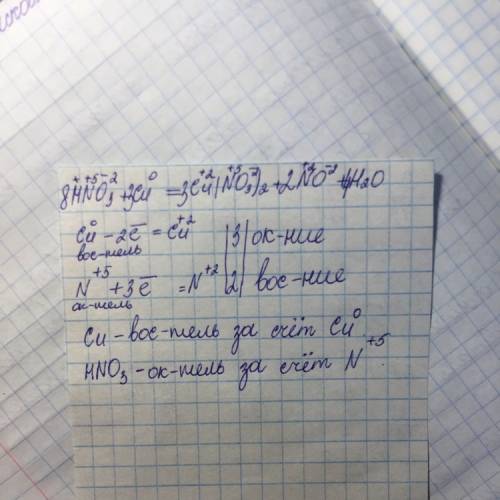 8H⁺N⁺⁵O₃⁻² + 3Cu⁰ = 3Cu⁺²(N⁺⁵O₃⁻²)₂ + 2N⁺²O⁻² + 4H₂O
Cu⁰ - 2e̅ = Cu⁺² | 3 | ок-ние
вос-тель
N⁺⁵ + 3e̅ = N⁺² | 2 | вос-ние
ок-тель
Cu - вос-тель за счёт Cu⁰
HNO₃ - ок-тель за счёт N⁺⁵